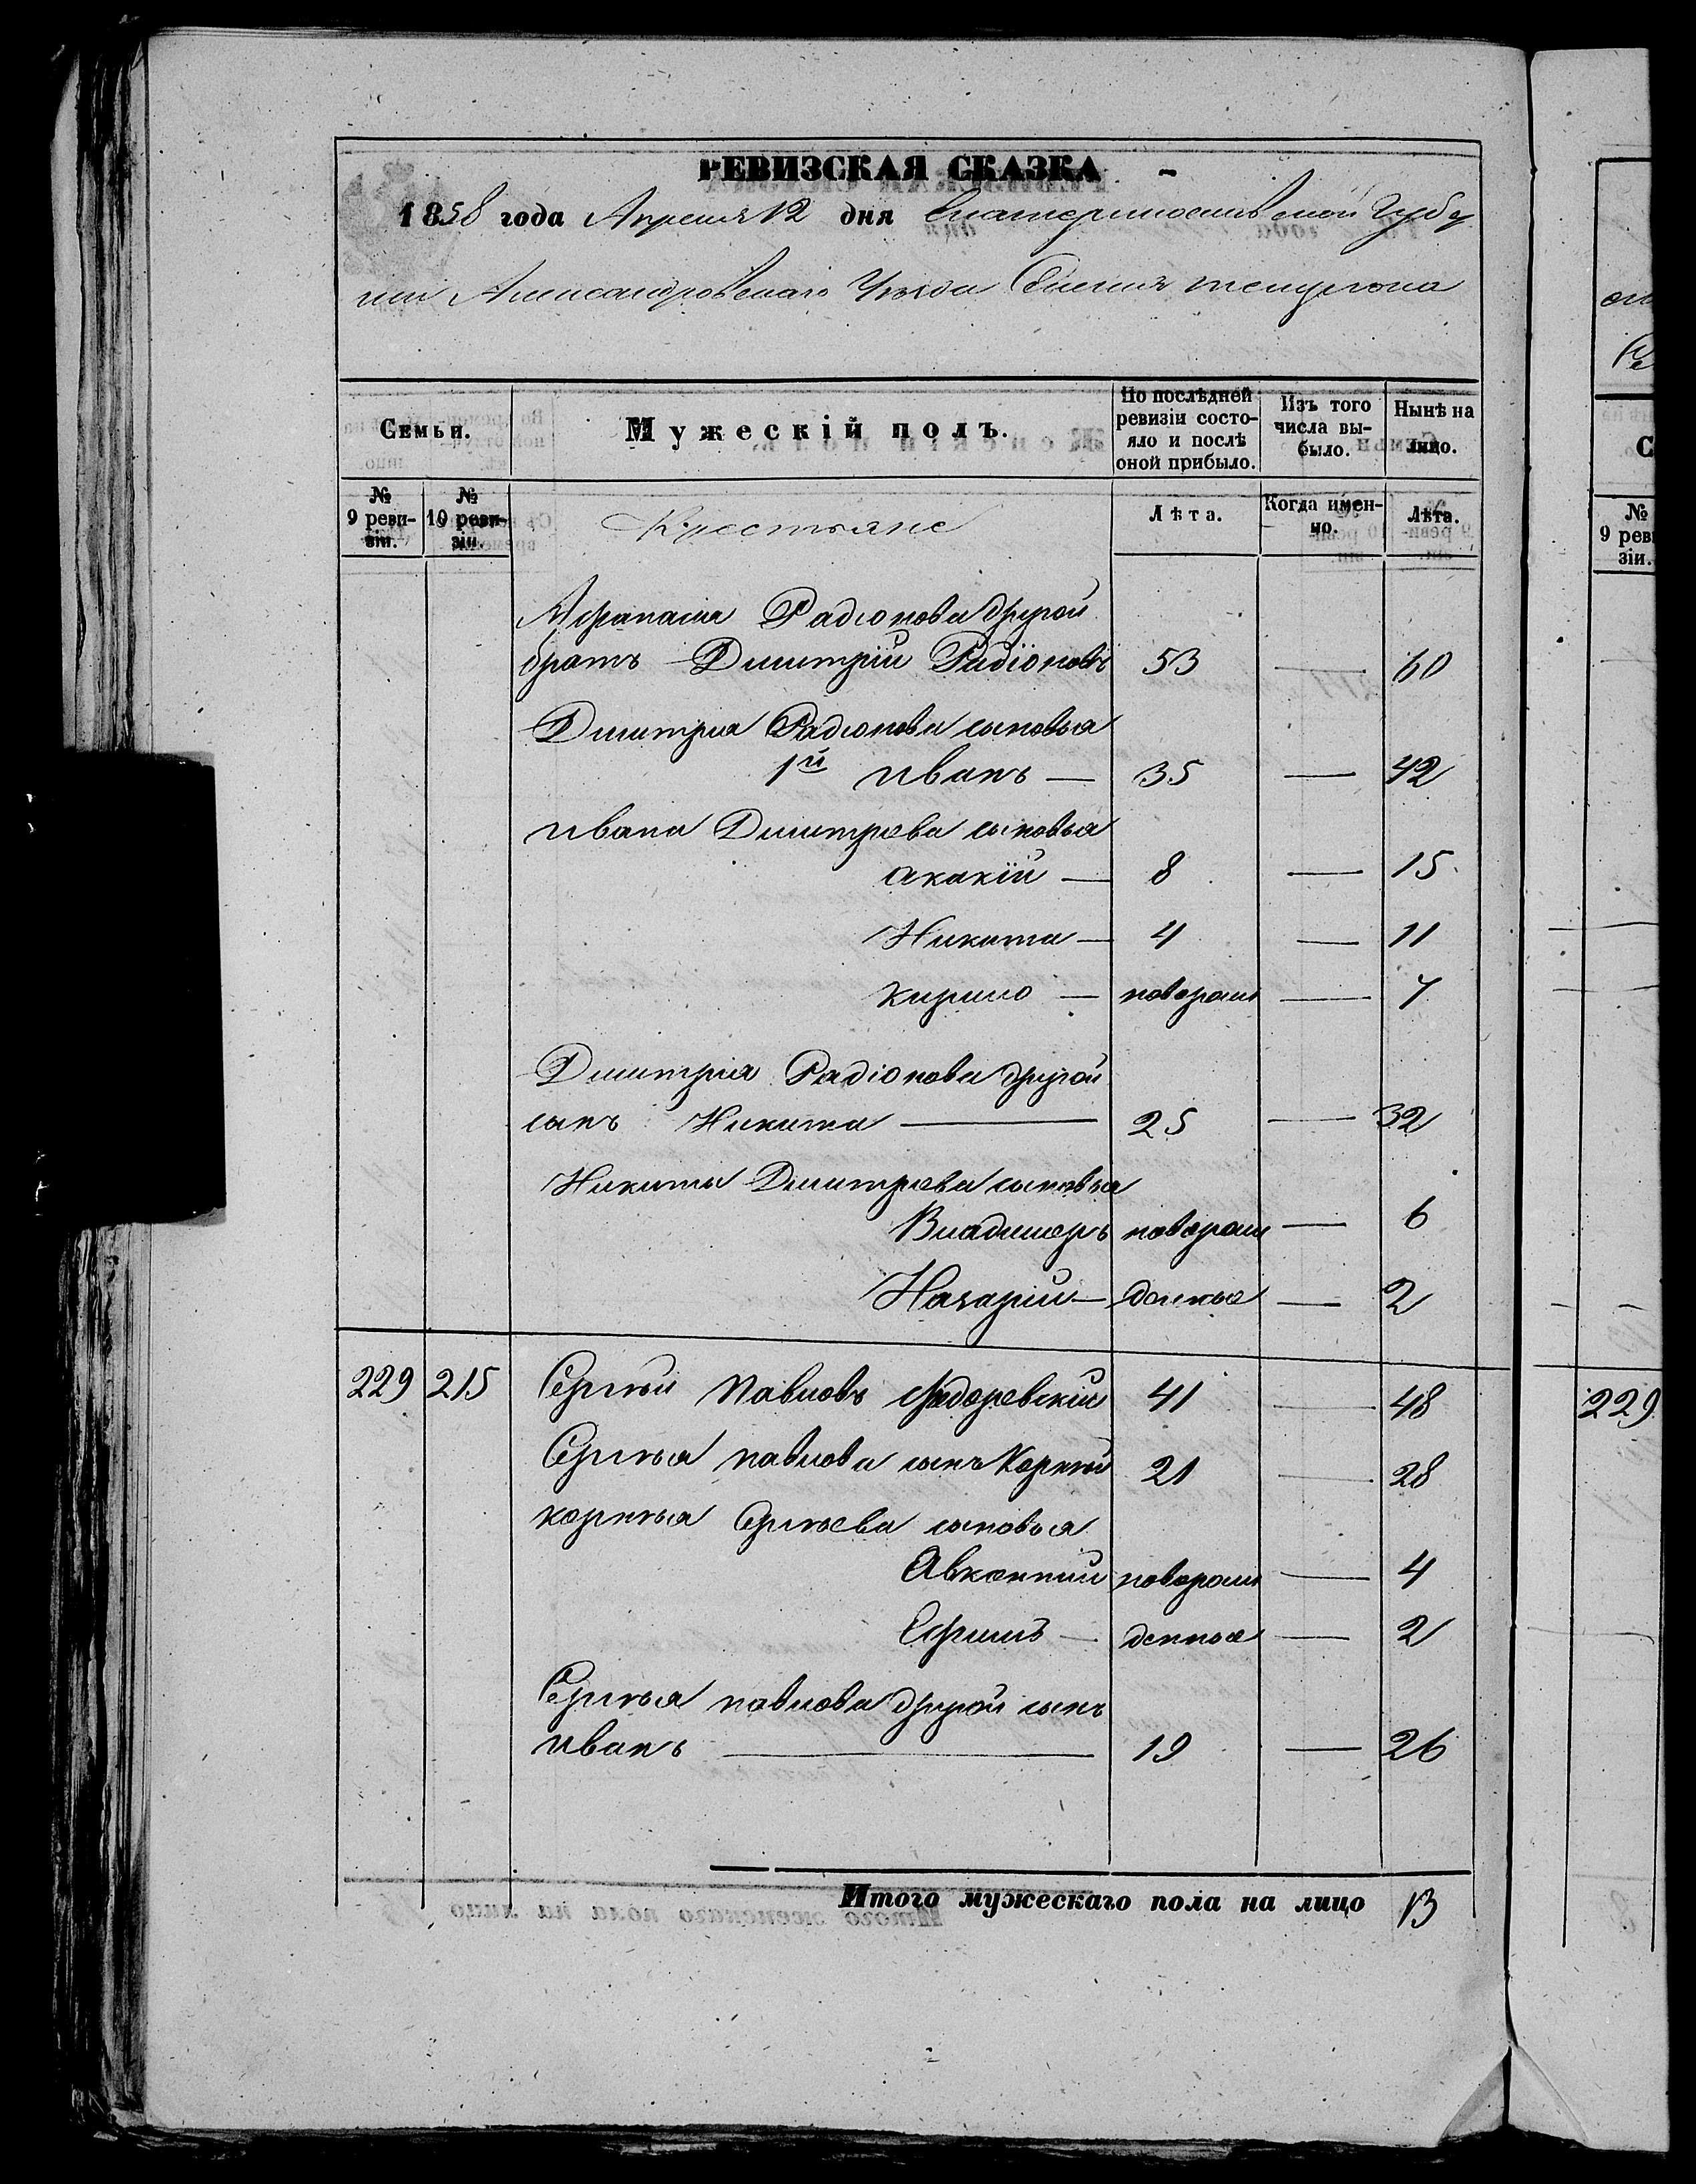 РЕВИЗСКАЯ СКАЗКА
1858 года Апреля 12 дня Екатеринославской Губер
нии Александровскаго Уезда Селенія
Семьи. Мужескій полъ. По послѣдней ревизіи состояло и послѣ оной прибыло. Изъ того числа выбыло. Нынѣ на лицо.
№ 9 ревизіи. № 10 ревизіи. Крестьяне Лѣта. Когда именно. Лѣта.
Афанасия Радионова другой
братъ Дмитрій Радіоновъ 53 — 60
Дмитрия Радионова сыновья
1й Иванъ — 35 — 42
Ивана Дмитриева сыновья
Акакій — 8 — 15
Никита — 4 — 11
Кирило — новорож — 7
Дмитрия Радіонова другой
сынъ Никита — 25 — 32
Никиты Дмитриева сыновья
Владимеръ новорож — 6
Назарий — денные — 2
229 215 Сергѣй Павловъ 41 — 48
Сергѣя Павлова сынъ Корнѣй 21 — 28
Корнѣя Сергѣева сыновья
Авксентий новорож — 4
Ефимъ — денные — 2
Сергѣя Павлова другой сынъ
Иванъ — 19 — 26
Итого мужескаго пола на лицо 13
С
№
9 реви
зіи.
229